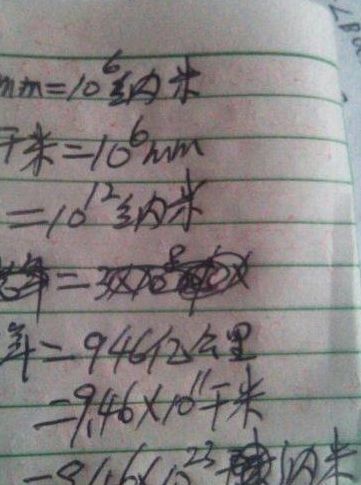 mm=10⁶纳米
千米=10⁶mm
=10¹²纳米
=3×10⁸
年=946亿公里
=9.46×10¹¹千米
=9.46×10²³纳米